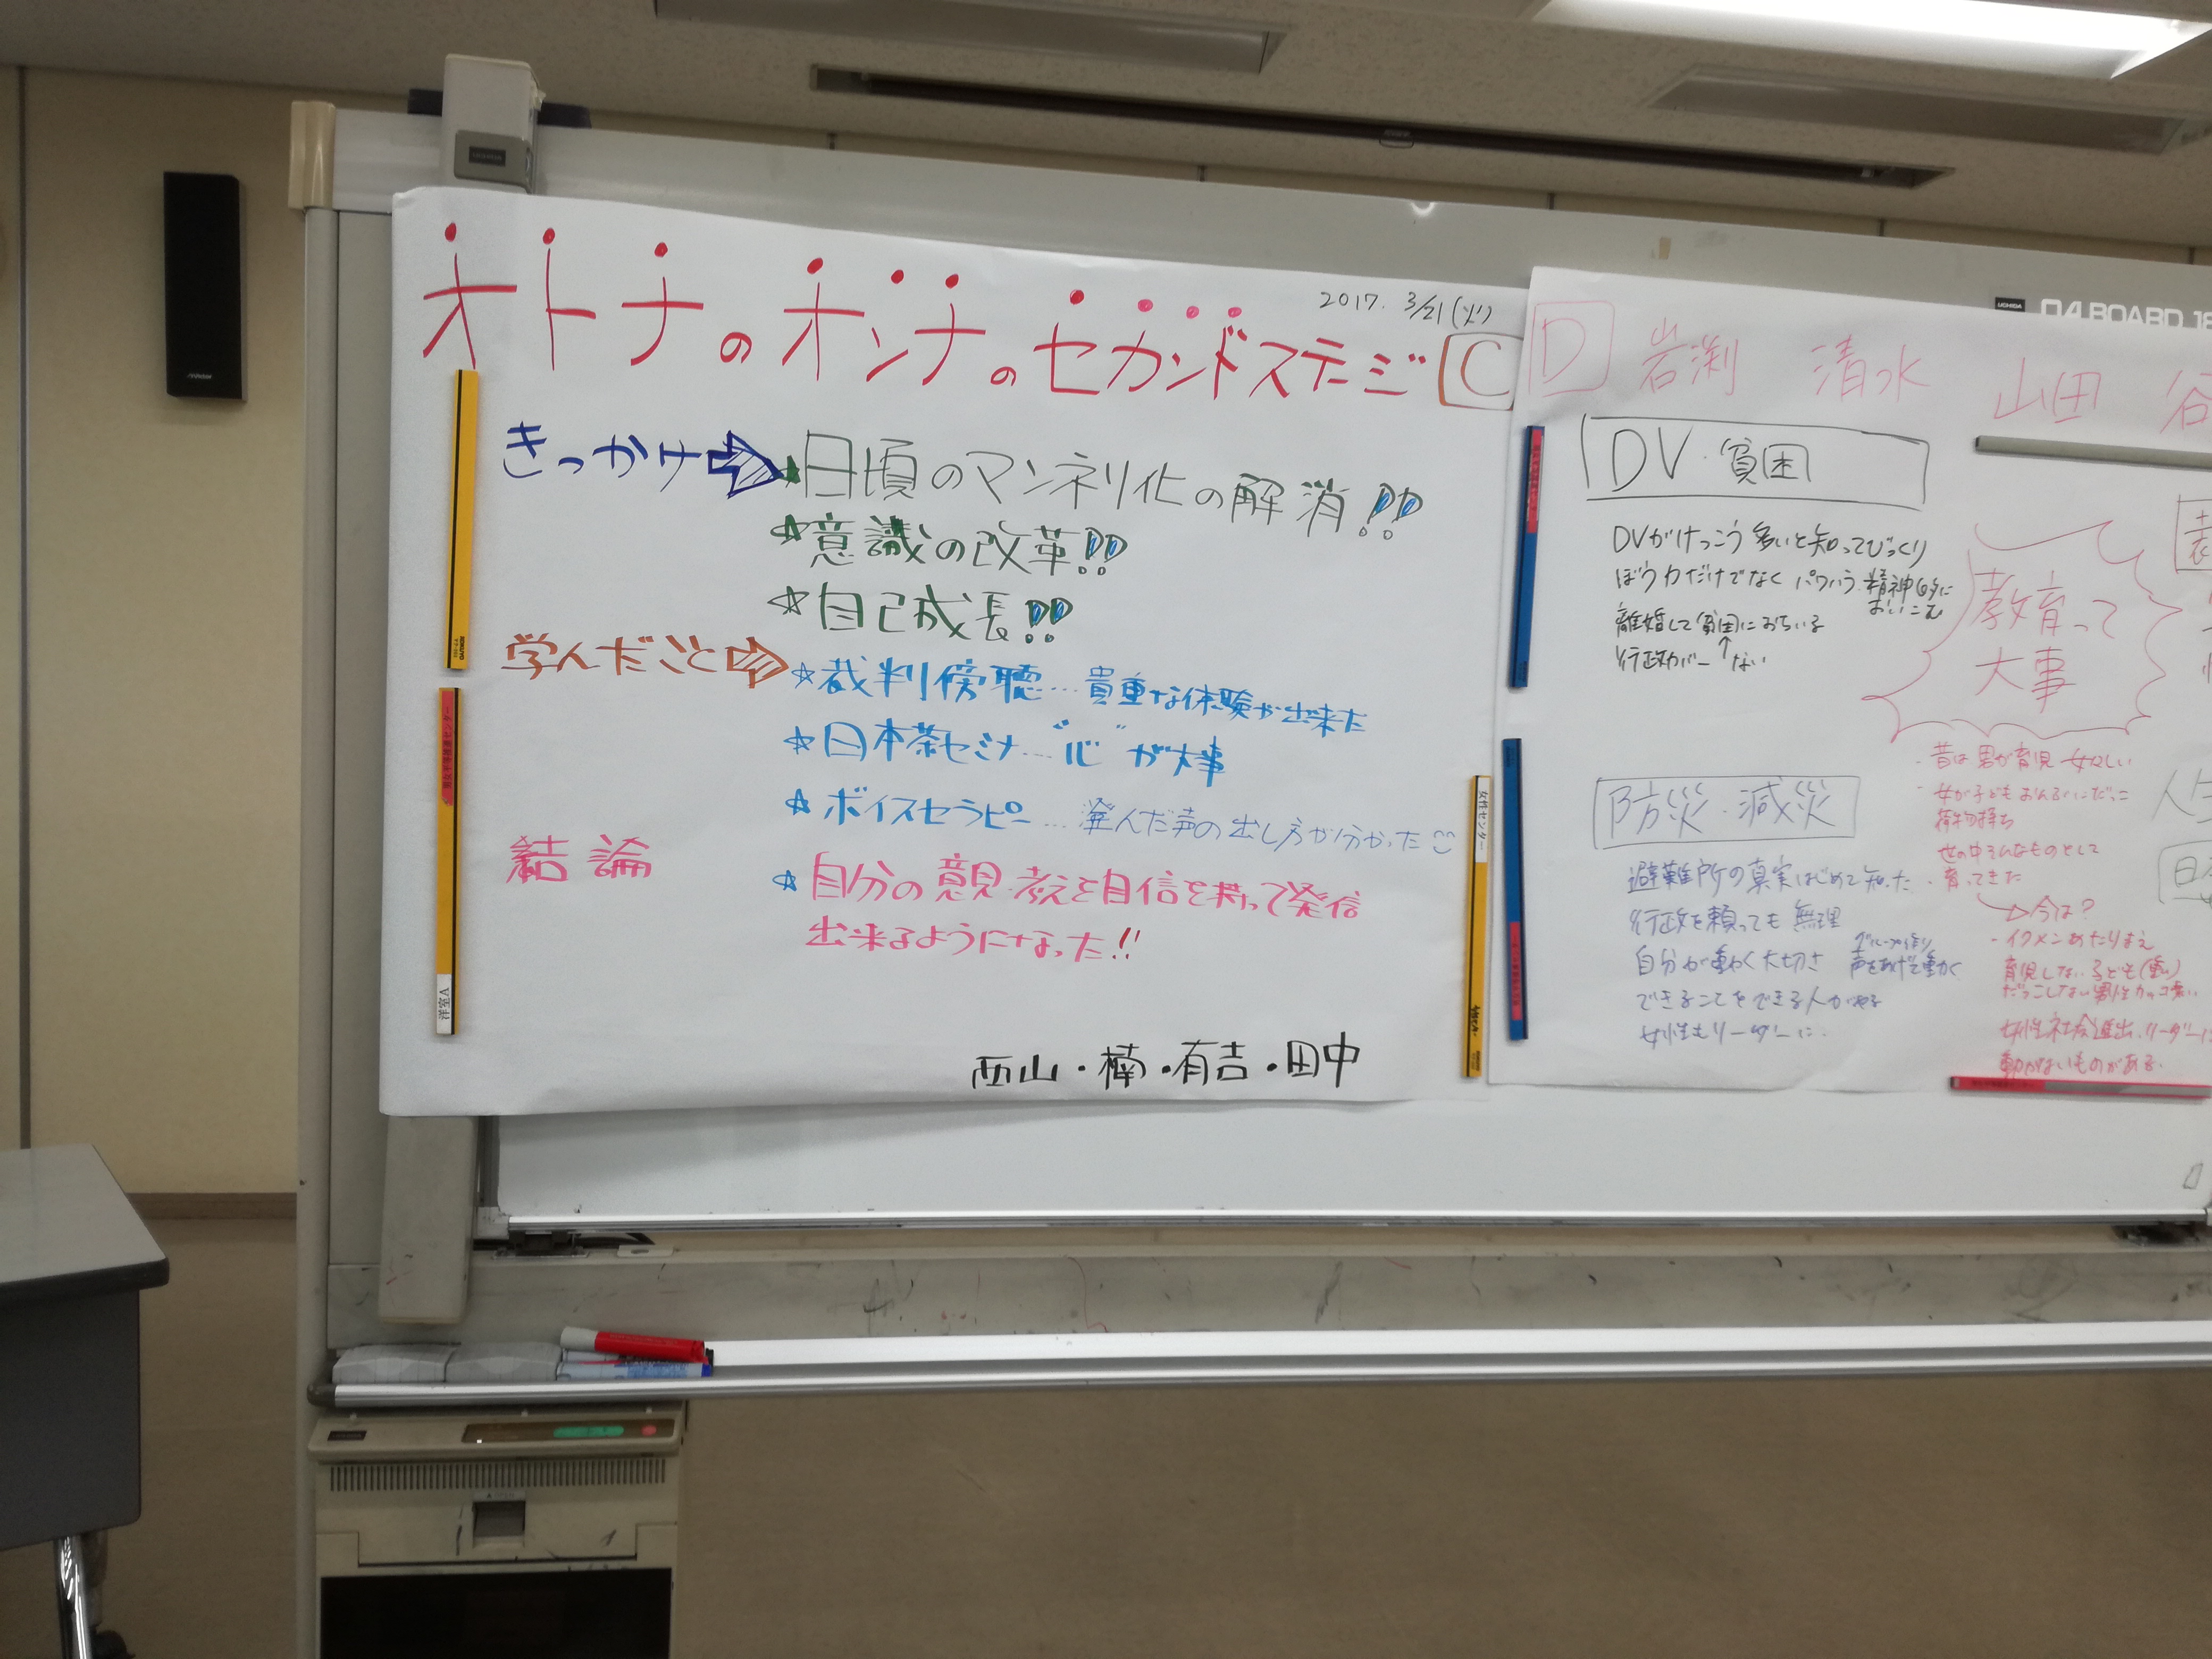 2017. 3/21(火)
オトナのオンナのセカンドステージ C
きっかけ
☆日頃のマンネリ化の解消!!
☆意識の改革!!
☆自己成長!!
学んだこと
☆裁判傍聴…貴重な体験が出来た
☆日本茶セミナ…“心”が大事
☆ボイスセラピー…澄んだ声の出し方が分かった
結論
☆自分の意見・考えを自信を持って発信
出来るようになった!!
西山・楠・有吉・田中
洋室A
女性センター
D 岩渕 清水 山田 谷
DV・貧困
DVがけっこう多いと知ってびっくり
ぼう力だけでなく パワハラ 精神的に
おいこむ
離婚して貧困におちいる
行政カバーない
教育って
大事
・昔は男が育児 女々しい
・女が子どもおんぶにだっこ
荷物持ち
世の中そんなものとして
育ってきた
今は?
・イクメンあたりまえ
育児しない 子ども(重い)
だっこしない男性カッコ悪い
女性社会進出、リーダーに
動かないものがある
防災・減災
避難所の真実はじめて知った
行政を頼っても無理
自分が動く大切さ
グループ作り
声をあげて動く
できることをできる人がやる
女性もリーダーに
UCHIDA